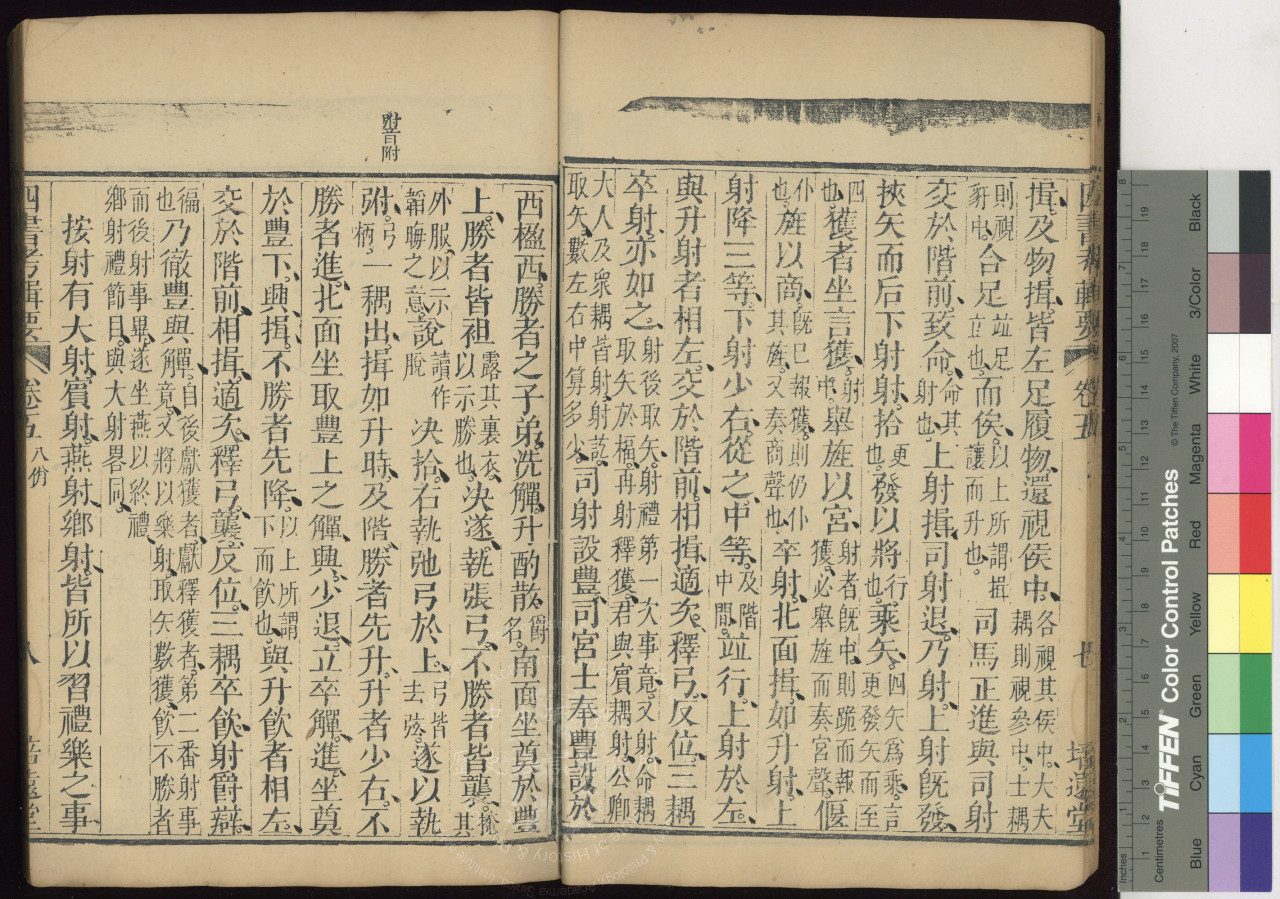 四書考輯要 卷五 七 培遠堂
揖。及物揖。皆左足履物。還視侯中。各視其侯中。大夫耦則視參中。士耦
則視豻中。合足並足立也。而俟。以上所謂揖讓而升也。司馬正進與司射
交於階前。致命。命其射也。上射揖。司射退。乃射。上射既發。
挾矢而后下射射。拾更也。發以將行也。乘矢。四矢爲乘。言更發矢而至
四也。獲者坐言獲。射中。舉旌以宮。射者既中。則跪而報獲。必舉旌而奏宮聲。偃
仆也。旌以商。既已報獲。則仍仆其旌。又奏商聲也。卒射。北面揖。如升射。上
射降三等。下射少右。從之。中等。及階中間。並行。上射於左。
與升射者相左。交於階前。相揖。適次。釋弓。反位。三耦
卒射。亦如之。射後取矢。射禮第一次事竟。又射。命耦取矢於楅。再射釋獲。君與賓耦射。公卿
大人及眾耦皆射。射訖。取矢。數左右中算多少。司射設豐。司宮士奉豐。設於
西楹西。勝者之子弟。洗觶。升酌散。爵名。南面坐奠於豐
上。勝者皆袒露其裏衣。以示勝也。決遂。執張弓。不勝者皆襲。掩其
外服。以示韜晦之意。說讀作脫決拾。右執弛弓於上。弓皆去弦。遂以執
弣。弓柄。一耦出。揖如升時。及階。勝者先升。升者少右。不
勝者進。北面坐取豐上之觶。興。少退。立卒觶。進。坐奠
於豐下。興。揖。不勝者先降。以上所謂下而飲也。與升飲者相左。
交於階前。相揖。適次。釋弓。襲。反位。三耦卒飲。射爵辯。
徧也。乃徹豐與觶。自後獻獲者。獻釋獲者。第二番射事竟。又將以樂射。取矢數獲。飲不勝者
而後射事畢。遂坐燕以終禮。鄉射禮節目。與大射畧同。
按射有大射。賓射。燕射。鄉射。皆所以習禮樂之事
四書考輯要 卷五 八佾 八 培遠堂
弣音附
Inches
Centimetres
TIFFEN® Color Control Patches
© The Tiffen Company, 2007
Blue Cyan Green Yellow Red Magenta White 3/Color Black